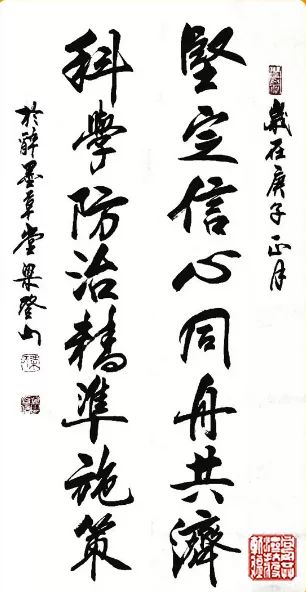 歲在庚子正月
堅定信心同舟共濟
科學防治精準施策
於醉墨草堂梁登山